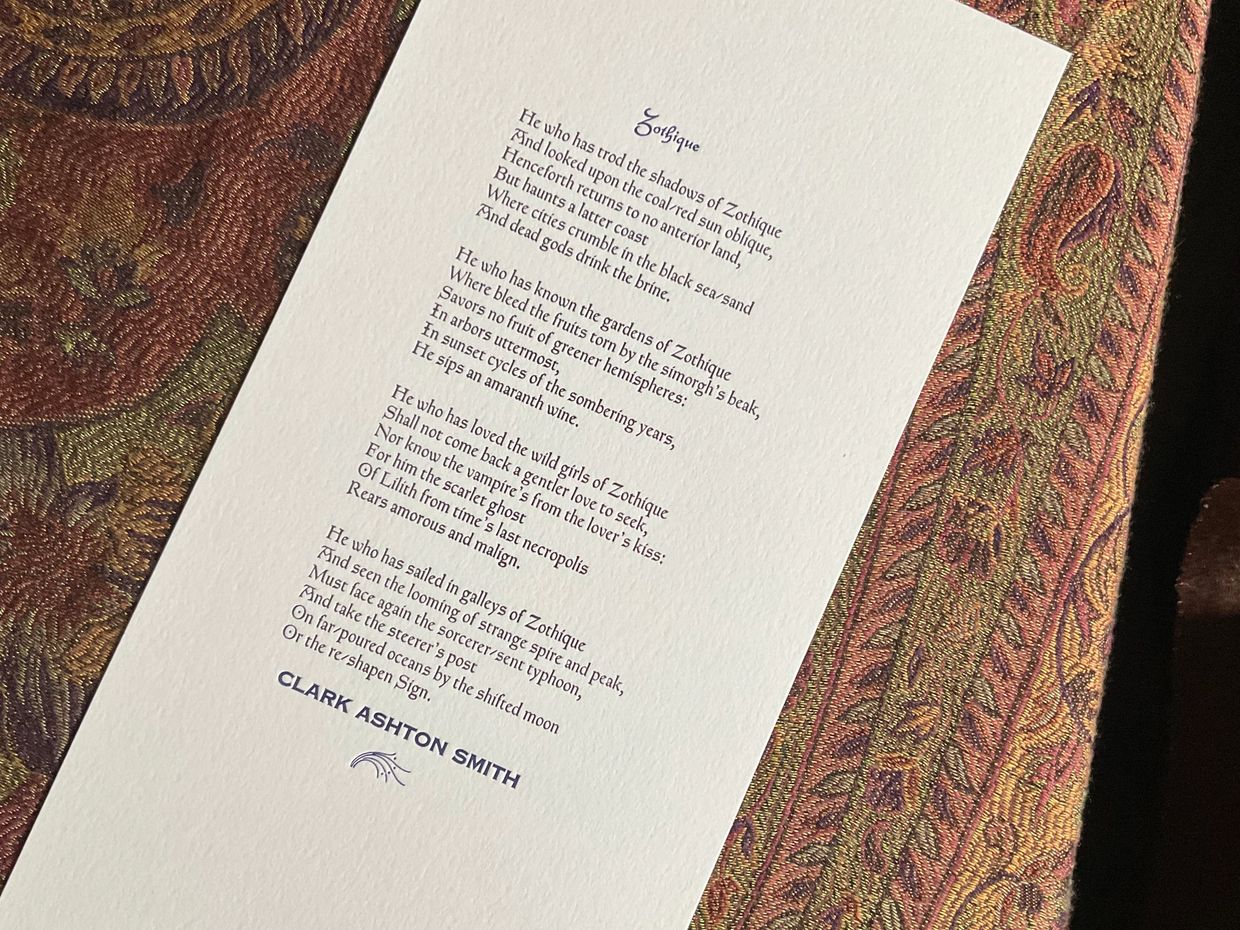 Zothique
He who has trod the shadows of Zothique
And looked upon the coal-red sun oblique,
Henceforth returns to no anterior land,
But haunts a latter coast
Where cities crumble in the black sea-sand
And dead gods drink the brine.
He who has known the gardens of Zothique
Where bleed the fruits torn by the simorgh's beak,
Savors no fruit of greener hemispheres:
In arbors uttermost,
In sunset cycles of the sombering years,
He sips an amaranth wine.
He who has loved the wild girls of Zothique
Shall not come back a gentler love to seek,
Nor know the vampire's from the lover's kiss:
For him the scarlet ghost
Of Lilith from time's last necropolis
Rears amorous and malign.
He who has sailed in galleys of Zothique
And seen the looming of strange spire and peak,
Must face again the sorcerer-sent typhoon,
And take the steerer's post
On far-poured oceans by the shifted moon
Or the re-shapen Sign.
CLARK ASHTON SMITH